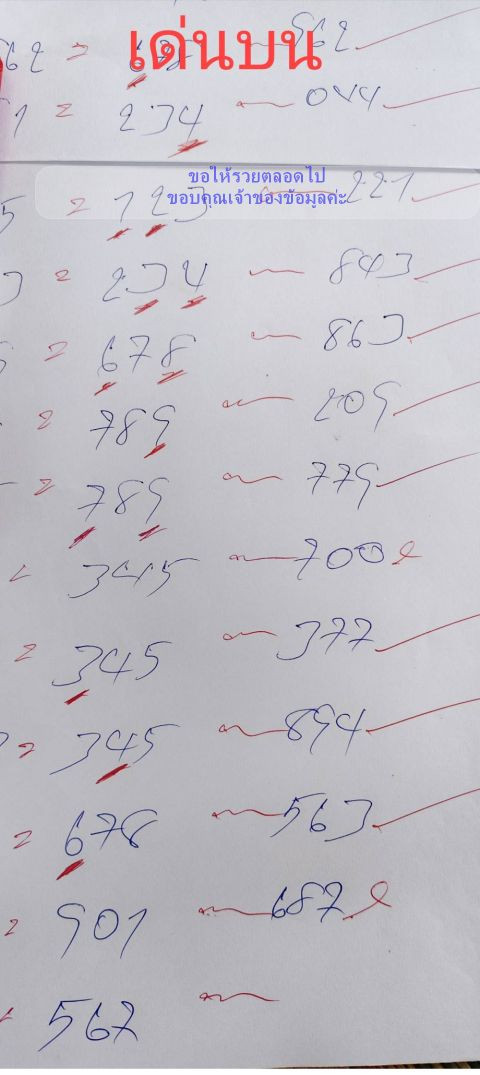 เด่นบน
62 = 678 962
1 = 234 044
ขอให้รวยตลอดไป
ขอบคุณเจ้าของข้อมูลค่ะ
5 = 123 221
= 234 843
= 678 863
= 789 209
= 789 779
345 700
= 345 377
= 345 894
= 678 563
= 901 687
567